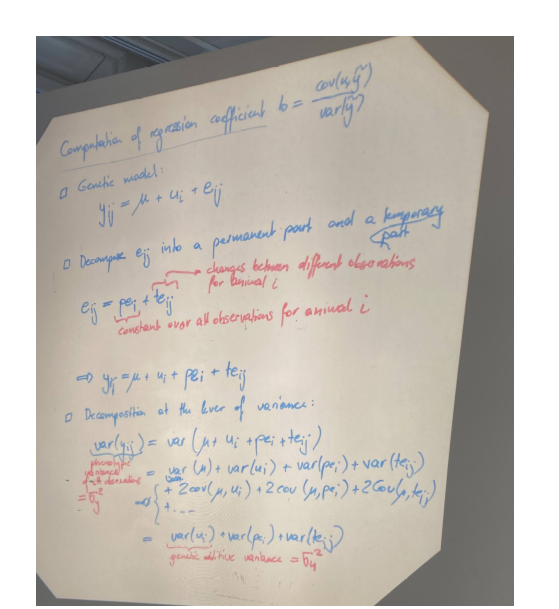 Computation of regression coefficient b = cov(u,ỹ) / var(ỹ)
□ Genetic model:
y_ij = μ + u_i + e_ij
□ Decompose e_ij into a permanent part and a temporary part
→ changes between different observations for animal i
e_ij = pe_i + te_ij
constant over all observations for animal i
⇒ y_ij = μ + u_i + pe_i + te_ij
□ Decomposition at the level of variance:
var(y_ij) = var(μ + u_i + pe_i + te_ij)
phenotypic variance of all observations = σ_y²
= var(μ) + var(u_i) + var(pe_i) + var(te_ij)
⇒ { + 2cov(μ,u_i) + 2cov(μ,pe_i) + 2Cov(μ,te_ij)
+ ....
= var(u_i) + var(pe_i) + var(te_ij)
genetic additive variance = σ_u²